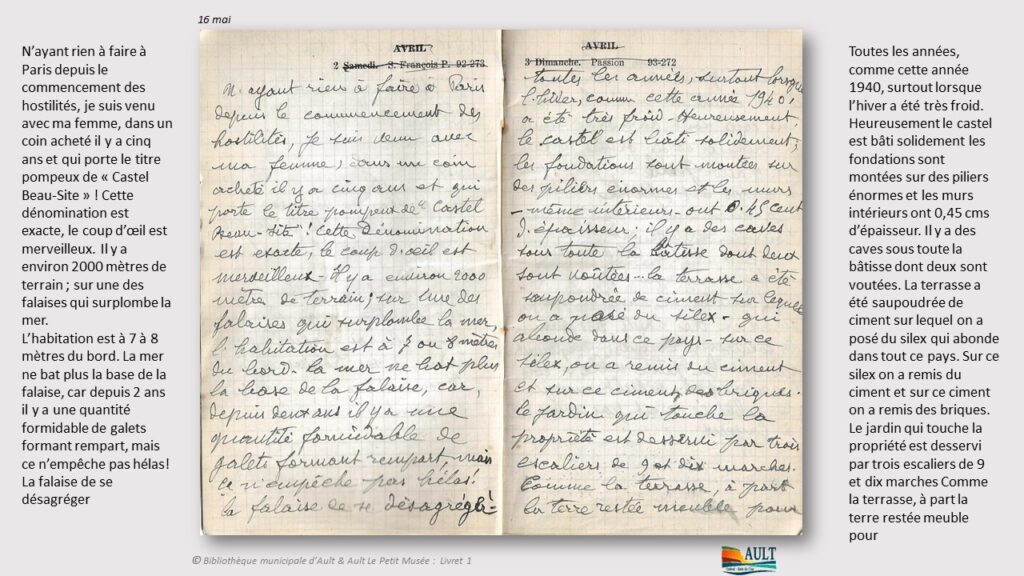 16 mai
N'ayant rien à faire à
Paris depuis le
commencement des
hostilités, je suis venu
avec ma femme, dans un
coin acheté il y a cinq
ans et qui porte le titre
pompeux de « Castel
Beau-Site » ! Cette
dénomination est
exacte, le coup d'œil est
merveilleux. Il y a
environ 2000 mètres de
terrain ; sur une des
falaises qui surplombe la
mer.
L'habitation est à 7 à 8
mètres du bord. La mer
ne bat plus la base de la
falaise, car depuis 2 ans
il y a une quantité
formidable de galets
formant rempart, mais
ce n'empêche pas hélas!
La falaise de se
désagréger
AVRIL
2 Samedi. S. François P. 92-273
N'ayant rien à faire à Paris
depuis le commencement des
hostilités, je suis venu avec
ma femme, dans un coin
acheté il y a cinq ans et qui
porte le titre pompeux de "Castel
Beau-Site"! Cette dénomination
est exacte, le coup d'œil est
merveilleux - Il y a environ 2000
mètre de terrain; sur une des
falaises qui surplombe la mer,
l'habitation est à 7 ou 8 mètres
du bord. la mer ne bat plus
la base de la falaise, car,
depuis deux ans il y a une
quantité formidable de
galets formant rempart, mais
ce n'empêche pas hélas!
la falaise de se désagrégér-
AVRIL
3 Dimanche. Passion 93-272
toutes les années, surtout lorsque
l'hiver, comme cette année 1940!
a été très froid - Heureusement
le castel est bâti solidement;
les fondations sont montées sur
des piliers énormes et les murs
- même intérieurs - ont 0.45 cent
d'épaisseur: il y a des caves
sous toute la bâtisse dont deux
sont voûtées... la terrasse a été
saupoudrée de ciment sur lequel
on a posé du silex - qui
abonde dans ce pays - sur ce
silex, on a remis du ciment
et sur ce ciment, des briques.
le jardin qui touche la
propriété est desservi par trois
escaliers de 9 et dix marches.
Comme la terrasse, à part
la terre restée meuble pour
Toutes les années,
comme cette année
1940, surtout lorsque
l'hiver a été très froid.
Heureusement le castel
est bâti solidement les
fondations sont
montées sur des piliers
énormes et les murs
intérieurs ont 0,45 cms
d'épaisseur. Il y a des
caves sous toute la
bâtisse dont deux sont
voutées. La terrasse a
été saupoudrée de
ciment sur lequel on a
posé du silex qui abonde
dans tout ce pays. Sur ce
silex on a remis du
ciment et sur ce ciment
on a remis des briques.
Le jardin qui touche la
propriété est desservi
par trois escaliers de 9
et dix marches Comme
la terrasse, à part la
terre restée meuble
pour
© Bibliothèque municipale d'Ault & Ault Le Petit Musée : Livret 1
AULT